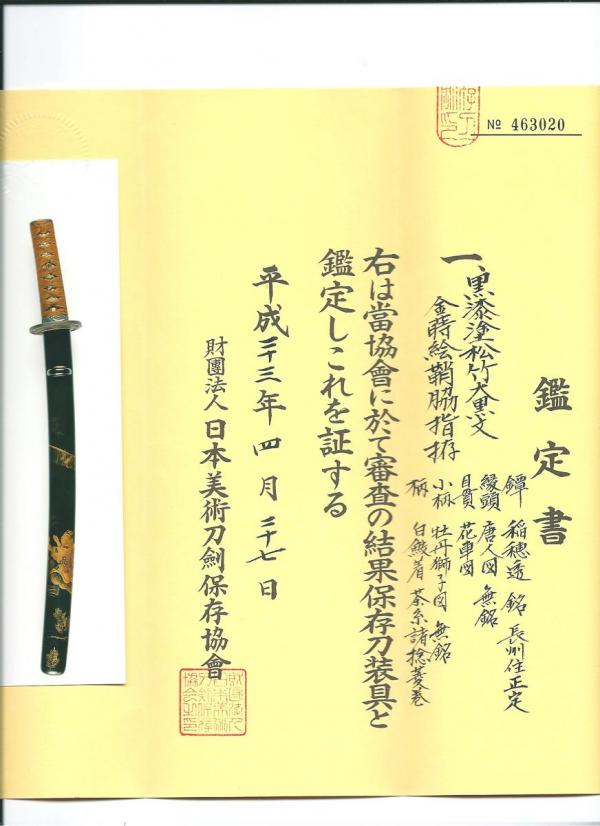 鑑定書
№ 463020
一、黒漆塗松竹大黒文
金蒔絵鞘脇指拵
鐔 稲穂透 銘 長州住正定
縁頭 唐人図 無銘
目貫 花車図
小柄 牡丹獅子図 無銘
柄 白鮫着 茶糸諸捻菱巻
右は當協會に於て審査の結果保存刀装具と
鑑定しこれを証する
平成二十三年四月二十七日
財團法人日本美術刀劍保存協會